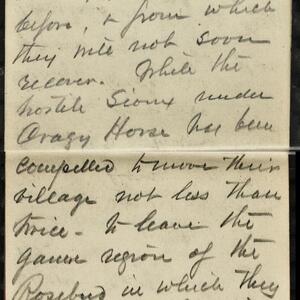 before, & from which
they will not soon
recover. While the
hostile Sioux under
Crazy Horse has been
compelled to move their
village not less than
twice - to leave the
game region of the
Rosebud in which they